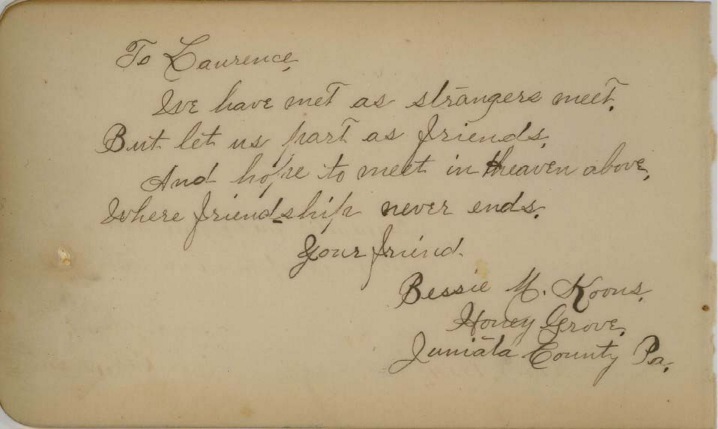 To Laurence,
We have met as strangers meet,
But let us part as friends,
And hope to meet in Heaven above,
Where friendship never ends.
Your friend.
Bessie M. Koons,
Honey Grove,
Juniata County Pa.